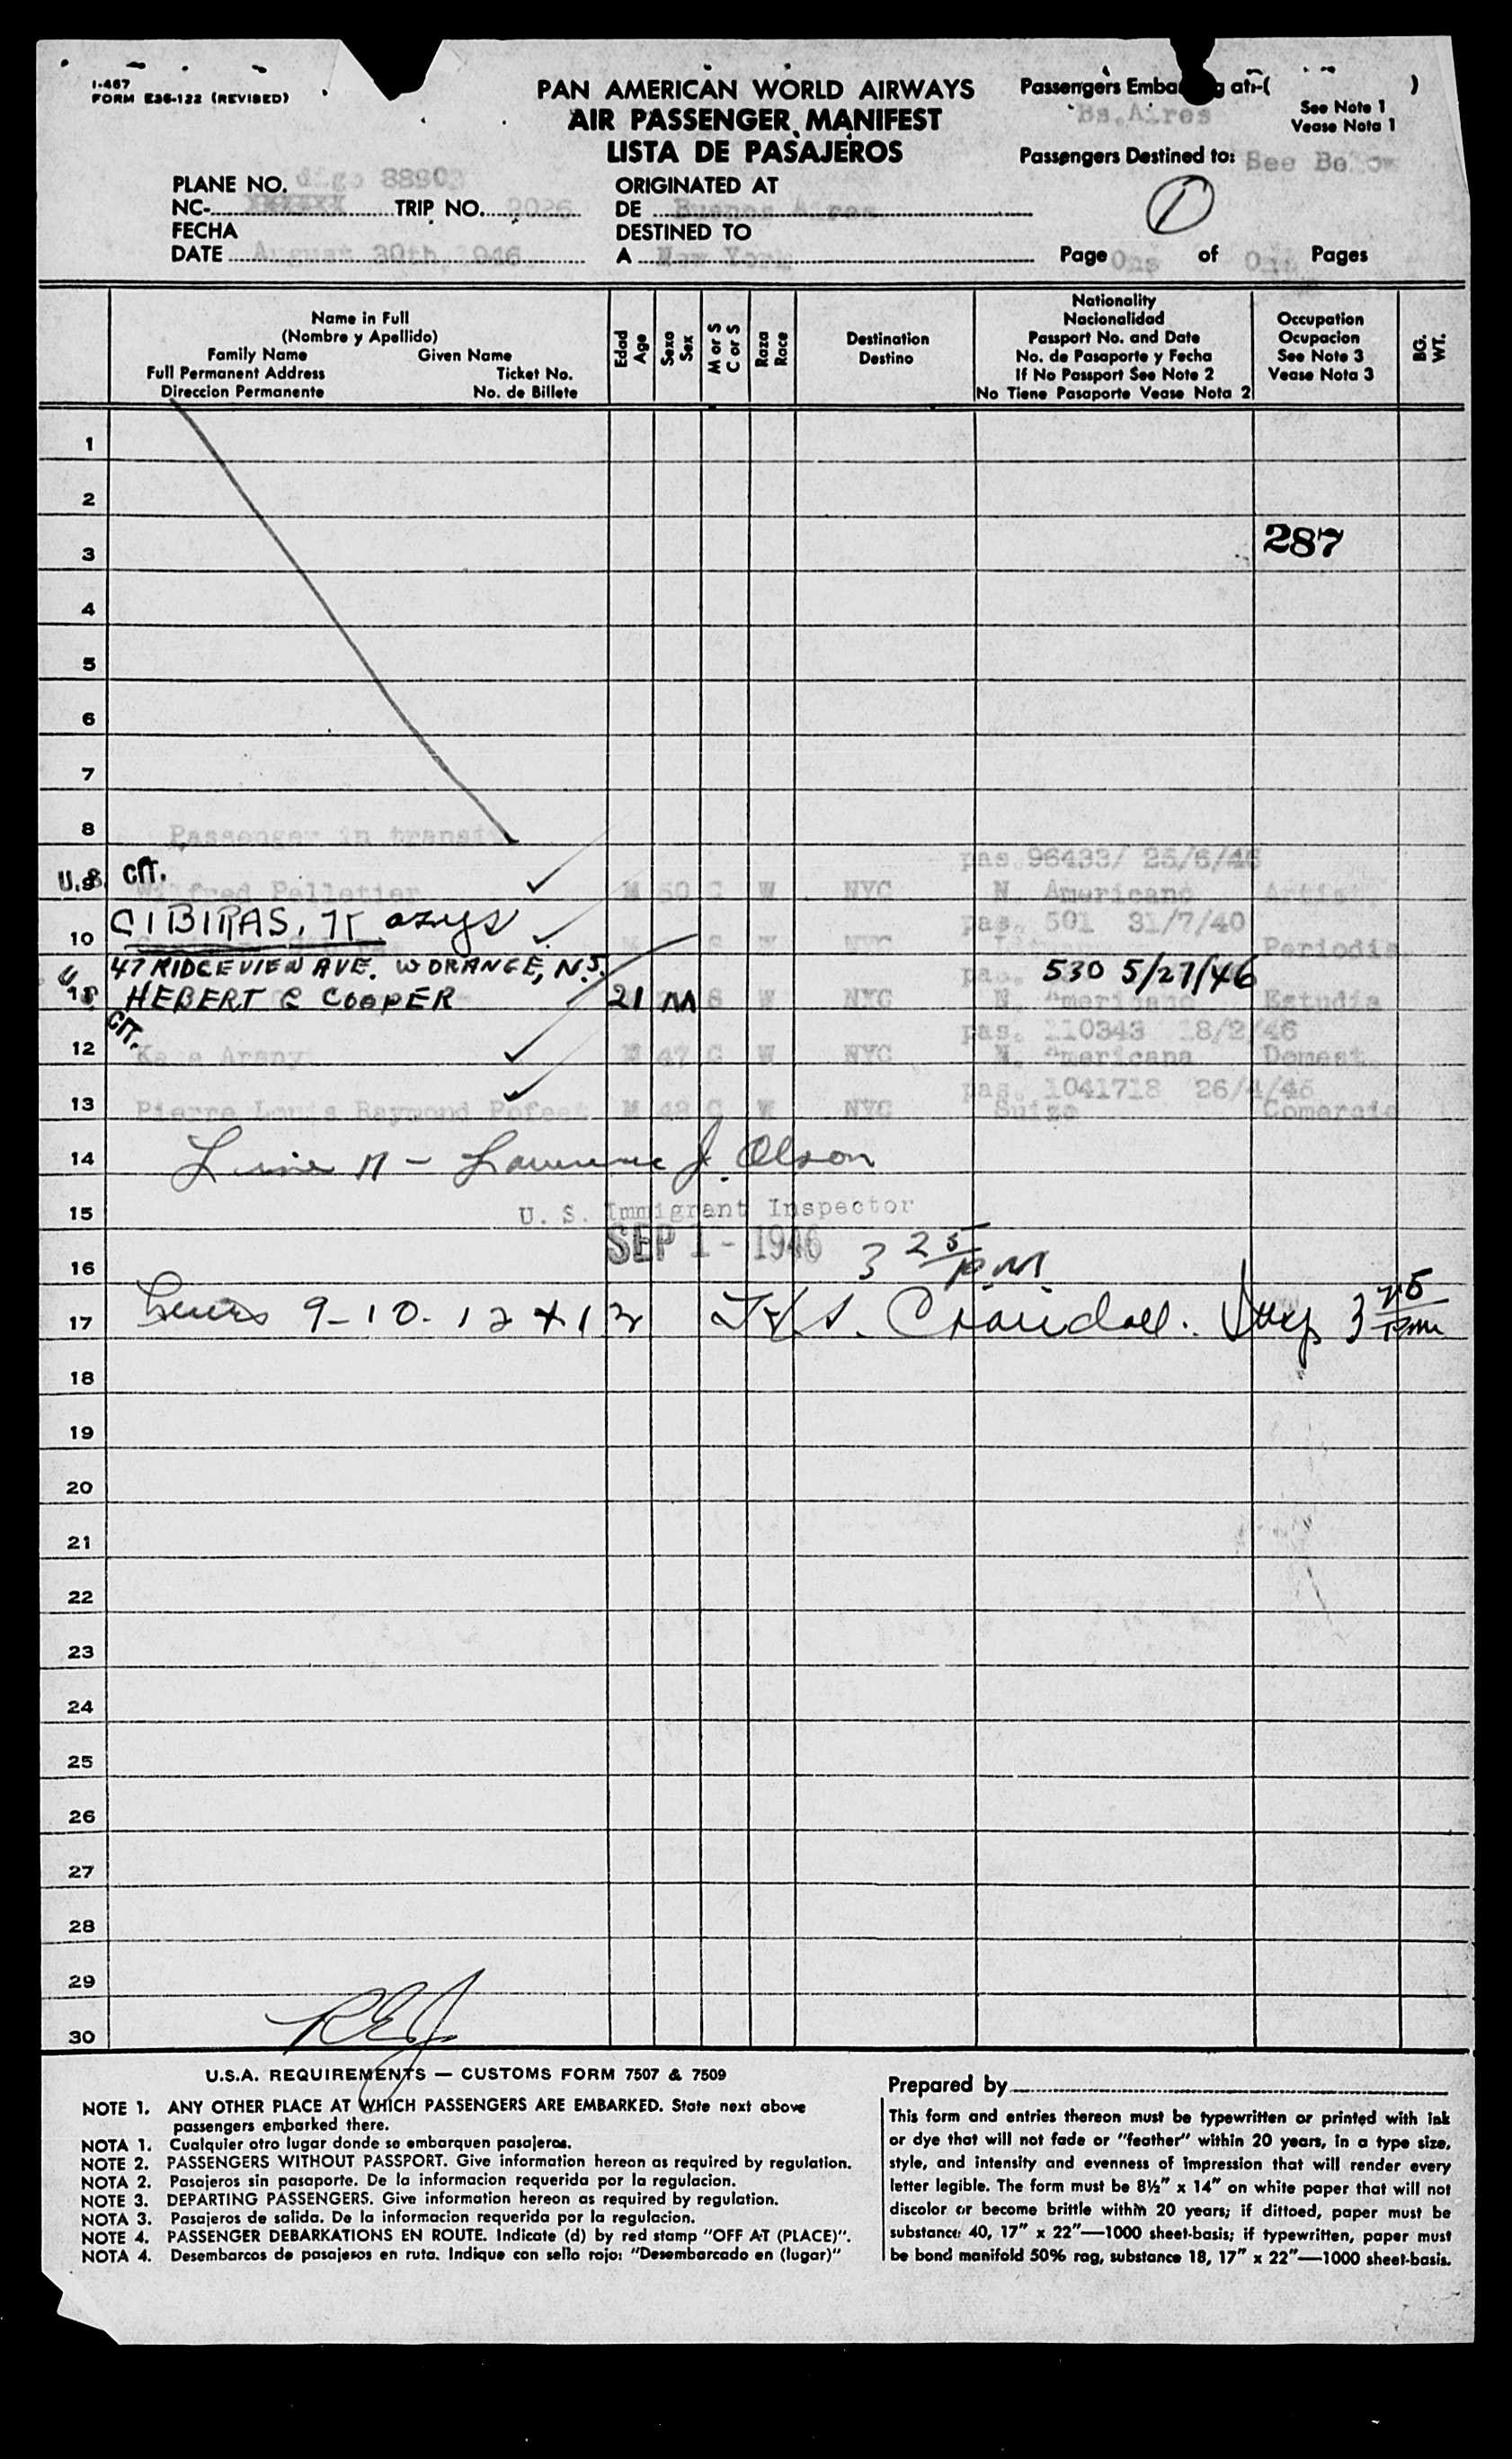 I-467
FORM E36-122 (REVISED)
PAN AMERICAN WORLD AIRWAYS
AIR PASSENGER MANIFEST
LISTA DE PASAJEROS
Passengers Emba g at:-( )
Bs.Aires
See Note 1
Vease Nota 1
Passengers Destined to: See Below
PLANE NO. 88903
NC- XXXXXX TRIP NO. 2026
FECHA
DATE August 30th, 946
ORIGINATED AT
DE Buenos Aires
DESTINED TO
A New York
1
Page One of One Pages
Name in Full
(Nombre y Apellido)
Family Name Given Name
Full Permanent Address Ticket No.
Direccion Permanente No. de Billete
Edad Age
Sexo Sex
M or S C or S
Raza Race
Destination
Destino
Nationality
Nacionalidad
Passport No. and Date
No. de Pasaporte y Fecha
If No Passport See Note 2
No Tiene Pasaporte Vease Nota 2
Occupation
Ocupacion
See Note 3
Vease Nota 3
BG. WT.
1
2
3 287
4
5
6
7
8 Passenger in transi
pas 96433/ 25/6/46
U.S. CIT.
9 Wilfred Pelletier M 50 C W NYC N. Americano Artist
CIBIRAS, K azys
pas. 501 31/7/40
10 S W NYC Periodis
47 RIDGEVIEW AVE. W ORANGE, N.J. 530 5/27/46
U.S. CIT.
11 HEBERT G COOPER 21 M S W NYC N. Americano Estudia
pas. 110343 18/2/46
12 Ka e Arany 47 C W NYC N. Americana Domest.
pas. 1041718 26/4/46
13 Pierre Louis Raymond M 42 C W NYC Suizo Comercio
14 Line 11 - Lawrence J. Olson
15 U. S. Immigrant Inspector
SEP 1 - 1946 3 25 P.M.
16
17 Lines 9-10-12 + 13 Crandall. Insp 3 25 P.M.
18
19
20
21
22
23
24
25
26
27
28
29
30
U.S.A. REQUIREMENTS — CUSTOMS FORM 7507 & 7509
NOTE 1. ANY OTHER PLACE AT WHICH PASSENGERS ARE EMBARKED. State next above
passengers embarked there.
NOTA 1. Cualquier otro lugar donde se embarquen pasajeros.
NOTE 2. PASSENGERS WITHOUT PASSPORT. Give information hereon as required by regulation.
NOTA 2. Pasajeros sin pasaporte. De la informacion requerida por la regulacion.
NOTE 3. DEPARTING PASSENGERS. Give information hereon as required by regulation.
NOTA 3. Pasajeros de salida. De la informacion requerida por la regulacion.
NOTE 4. PASSENGER DEBARKATIONS EN ROUTE. Indicate (d) by red stamp "OFF AT (PLACE)".
NOTA 4. Desembarcos de pasajesos en ruta. Indique con sello rojo: "Desembarcado en (lugar)"
Prepared by
This form and entries thereon must be typewritten or printed with ink
or dye that will not fade or "feather" within 20 years, in a type size,
style, and intensity and evenness of impression that will render every
letter legible. The form must be 8½" x 14" on white paper that will not
discolor or become brittle within 20 years; if dittoed, paper must be
substance 40, 17" x 22"—1000 sheet-basis; if typewritten, paper must
be bond manifold 50% rag, substance 18, 17" x 22"—1000 sheet-basis.